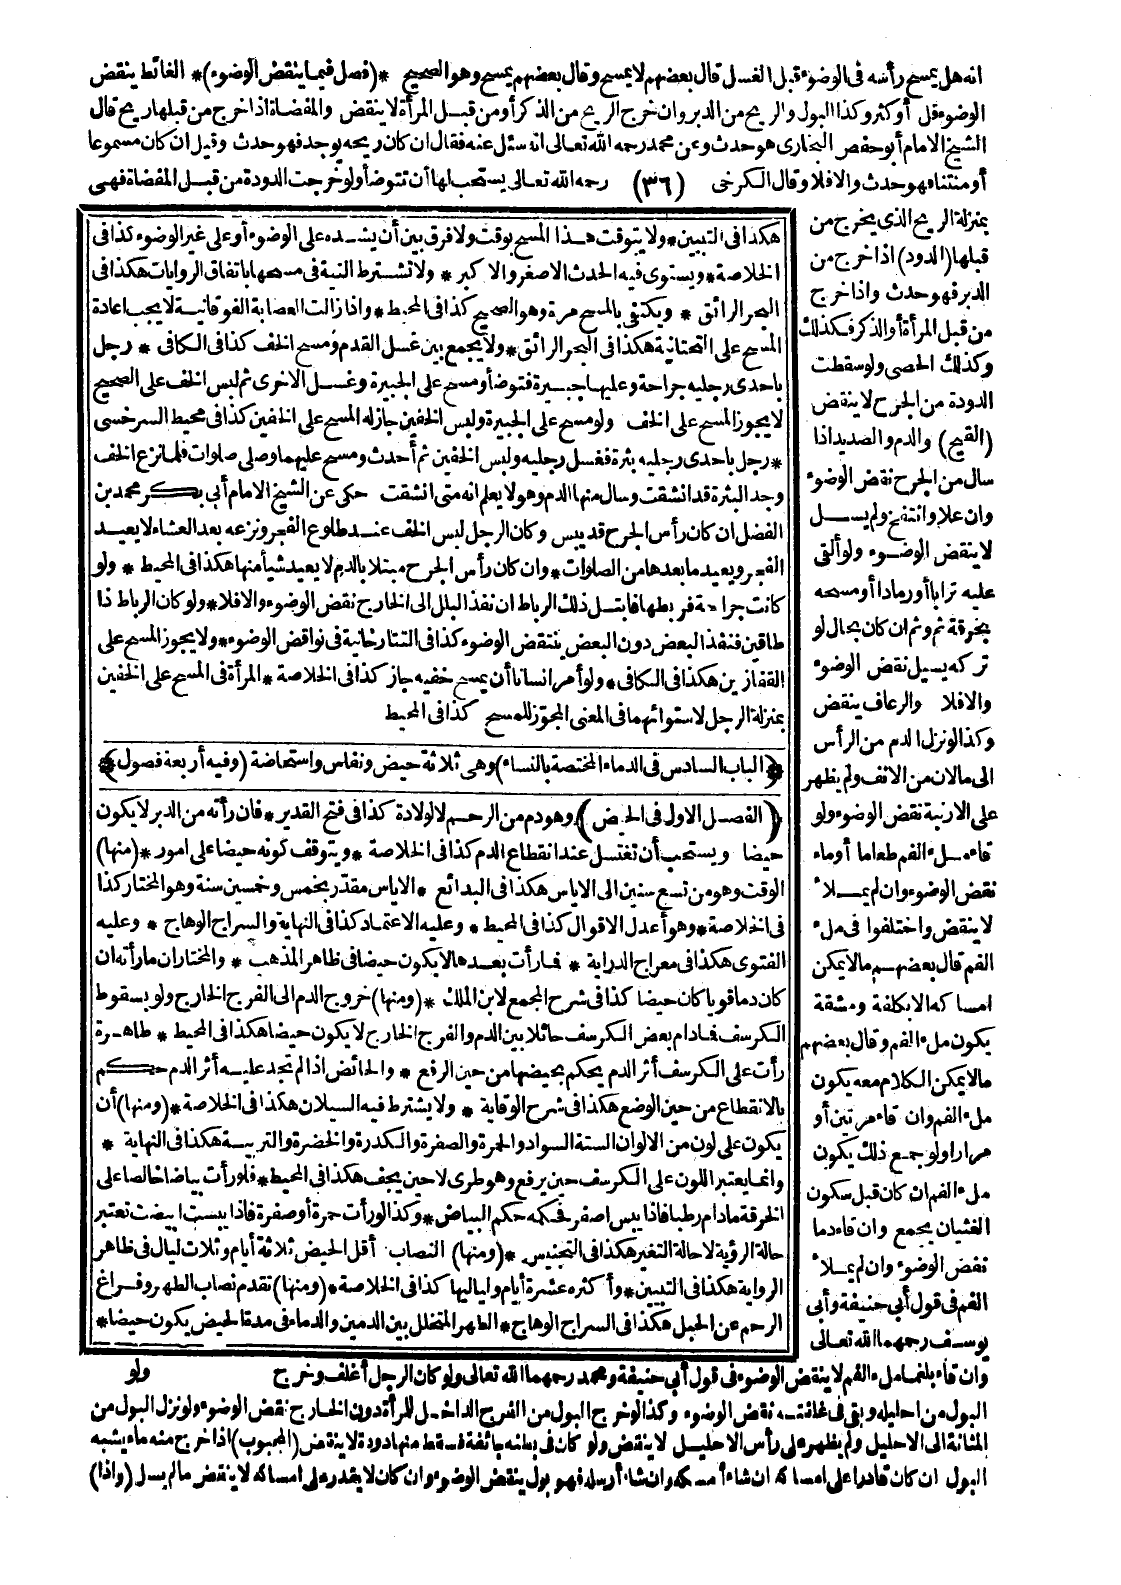 انه هل يمسح رأسه فى الوضوء قبل الغسل قال بعضهم لا يمسح وقال بعضهم يمسح وهو الصحيح *(فصل فيما ينقض الوضوء)* الغائط ينقض
الوضوء قل أو كثر وكذا البول والريح من الدبر وان خرج الريح من الذكر أو من قبل المرأة لا ينقض والمفضاة اذا خرج من قبلها ريح قال
الشيخ الامام أبو حفص البخارى هو حدث وعن محمد رحمه الله تعالى انه سئل عنه فقال ان كان ريحه يوجد فهو حدث وقيل ان كان مسموعا
أو منتنا فهو حدث والافلا وقال الكرخى (٣٦) رحمه الله تعالى يستحب لها أن تتوضأ ولو خرجت الدودة من قبل المفضاة فهى
بمنزلة الريح الذى يخرج من
قبلها (الدود) اذا خرج من
الدبر فهو حدث واذا خرج
من قبل المرأة أو الذكر فكذلك
وكذلك الحصى ولو سقطت
الدودة من الجرح لا ينقض
(القيح) والدم والصديد اذا
سال من الجرح نقض الوضوء
وان علا وانتفخ ولم يسل
لا ينقض الوضوء ولو ألقى
عليه ترابا أو رمادا أو مسحه
بخرقة ثم وثم ان كان بحال لو
تركه يسيل نقض الوضوء
والافلا والرعاف ينقض
وكذا لو نزل الدم من الرأس
الى مالان من الانف ولم يظهر
على الارنبة نقض الوضوء ولو
قاء ملء الفم طعاما أو ماء
نقض الوضوء وان لم يملأ
لا ينقض واختلفوا فى ملء
الفم قال بعضهم مالا يمكن
امساكه الا بكلفة ومشقة
يكون ملء الفم وقال بعضهم
مالا يمكن الكلام معه يكون
ملء الفم وان قاء مرتين أو
مرارا ولو جمع ذلك يكون
ملء الفم ان كان قبل سكون
الغثيان يجمع وان قاء دما
نقض الوضوء وان لم يملأ
الفم فى قول أبى حنيفة وأبى
يوسف رحمهما الله تعالى
وان قاء بلغما ملء الفم لا ينقض الوضوء فى قول أبى حنيفة ومحمد رحمهما الله تعالى ولو كان الرجل أغلف وخرج
البول من احليله وبقى فى غلفته نقض الوضوء وكذا لو خرج البول من الفرج الداخل للمرأة دون الخارج نقض الوضوء ولو نزل البول من
المثانة الى الاحليل ولم يظهر على رأس الاحليل لا ينقض ولو كان فى بطنه جائفة فسقط منها دودة لا ينقض (المجبوب) اذا خرج منه ماء يشبه
البول ان كان قادرا على امساكه ان شاء أمسكه وان شاء أرسله فهو بول ينقض الوضوء وان كان لا يقدر على امساكه لا ينقض مالم يسل (واذا)
هكذا فى التبيين * ولا يتوقت هذا المسح بوقت ولا فرق بين أن يشده على الوضوء أو على غير الوضوء كذا فى
الخلاصة * ويستوى فيه الحدث الاصغر والاكبر * ولا تشترط النية فى مسحها باتفاق الروايات هكذا فى
البحر الرائق * ويكتفى بالمسح مرة وهو الصحيح كذا فى المحيط * واذا زالت العصابة الفوقانية لا يجب اعادة
المسح على التحتانية هكذا فى البحر الرائق * ولا يجمع بين غسل القدم ومسح الخف كذا فى الكافى * رجل
باحدى رجليه جراحة وعليها جبيرة فتوضأ ومسح على الجبيرة وغسل الاخرى ثم لبس الخف على الصحيح
لا يجوز المسح على الخف ولو مسح على الجبيرة ولبس الخفين جاز له المسح على الخفين كذا فى محيط السرخسى
* رجل باحدى رجليه بثرة فغسل رجليه ولبس الخفين ثم أحدث ومسح عليهما وصلى صلوات فلما نزع الخف
وجد البثرة قد انشقت وسال منها الدم وهو لا يعلم انه متى انشقت حكى عن الشيخ الامام أبى بكر محمد بن
الفضل ان كان رأس الجرح قد يبس وكان الرجل لبس الخف عند طلوع الفجر ونزعه بعد العشاء لا يعيد
الفجر ويعيد ما بعدها من الصلوات * وان كان رأس الجرح مبتلا بالدم لا يعيد شيأ منها هكذا فى المحيط * ولو
كانت جراحة فربطها فابتل ذلك الرباط ان نفذ البلل الى الخارج نقض الوضوء والافلا * ولو كان الرباط ذا
طاقين فنفذ البعض دون البعض ينتقض الوضوء كذا فى التتارخانية فى نواقض الوضوء * ولا يجوز المسح على
القفازين هكذا فى الكافى * ولو أمر انسانا أن يمسح خفيه جاز كذا فى الخلاصة * المرأة فى المسح على الخفين
بمنزلة الرجل لاستوائهما فى المعنى المجوّز للمسح كذا فى المحيط
﴿الباب السادس فى الدماء المختصة بالنساء﴾ وهى ثلاثة حيض ونفاس واستحاضة (وفيه أربعة فصول)
(الفصل الاول فى الحيض) وهو دم من الرحم لا لولادة كذا فى فتح القدير * فان رأته من الدبر لا يكون
حيضا ويستحب أن تغتسل عند انقطاع الدم كذا فى الخلاصة * ويتوقف كونه حيضا على امور * (منها)
الوقت وهو من تسع سنين الى الاياس هكذا فى البدائع * الاياس مقدّر بخمس وخمسين سنة وهو المختار كذا
فى الخلاصة * وهو أعدل الاقوال كذا فى المحيط * وعليه الاعتماد كذا فى النهاية والسراج الوهاج * وعليه
الفتوى هكذا فى معراج الدراية * فما رأت بعدها لا يكون حيضا فى ظاهر المذهب * والمختار ان ما رأته ان
كان دما قويا كان حيضا كذا فى شرح المجمع لابن الملك * (ومنها) خروج الدم الى الفرج الخارج ولو بسقوط
الكرسف فمادام بعض الكرسف حائلا بين الدم والفرج الخارج لا يكون حيضا هكذا فى المحيط * طاهرة
رأت على الكرسف أثر الدم يحكم بحيضها من حين الرفع * والحائض اذا لم تجد عليه أثر الدم حكم
بالانقطاع من حين الوضع هكذا فى شرح الوقاية * ولا يشترط فيه السيلان هكذا فى الخلاصة * (ومنها) أن
يكون على لون من الالوان الستة السواد والحمرة والصفرة والكدرة والخضرة والتربية هكذا فى النهاية *
وانما يعتبر اللون على الكرسف حين يرفع وهو طرى لا حين يجف هكذا فى المحيط * فلو رأت بياضا خالصا على
الخرقة مادام رطبا فاذا يبس اصفر فحكمه حكم البياض * وكذا لو رأت حمرة أو صفرة فاذا يبست ابيضت تعتبر
حالة الرؤية لا حالة التغير هكذا فى التجنيس * (ومنها) النصاب أقل الحيض ثلاثة أيام وثلاث ليال فى ظاهر
الرواية هكذا فى التبيين * وأكثره عشرة أيام ولياليها كذا فى الخلاصة * (ومنها) تقدم نصاب الطهر وفراغ
الرحم عن الحبل هكذا فى السراج الوهاج * الطهر المتخلل بين الدمين والدماء فى مدة الحيض يكون حيضا *
ولو